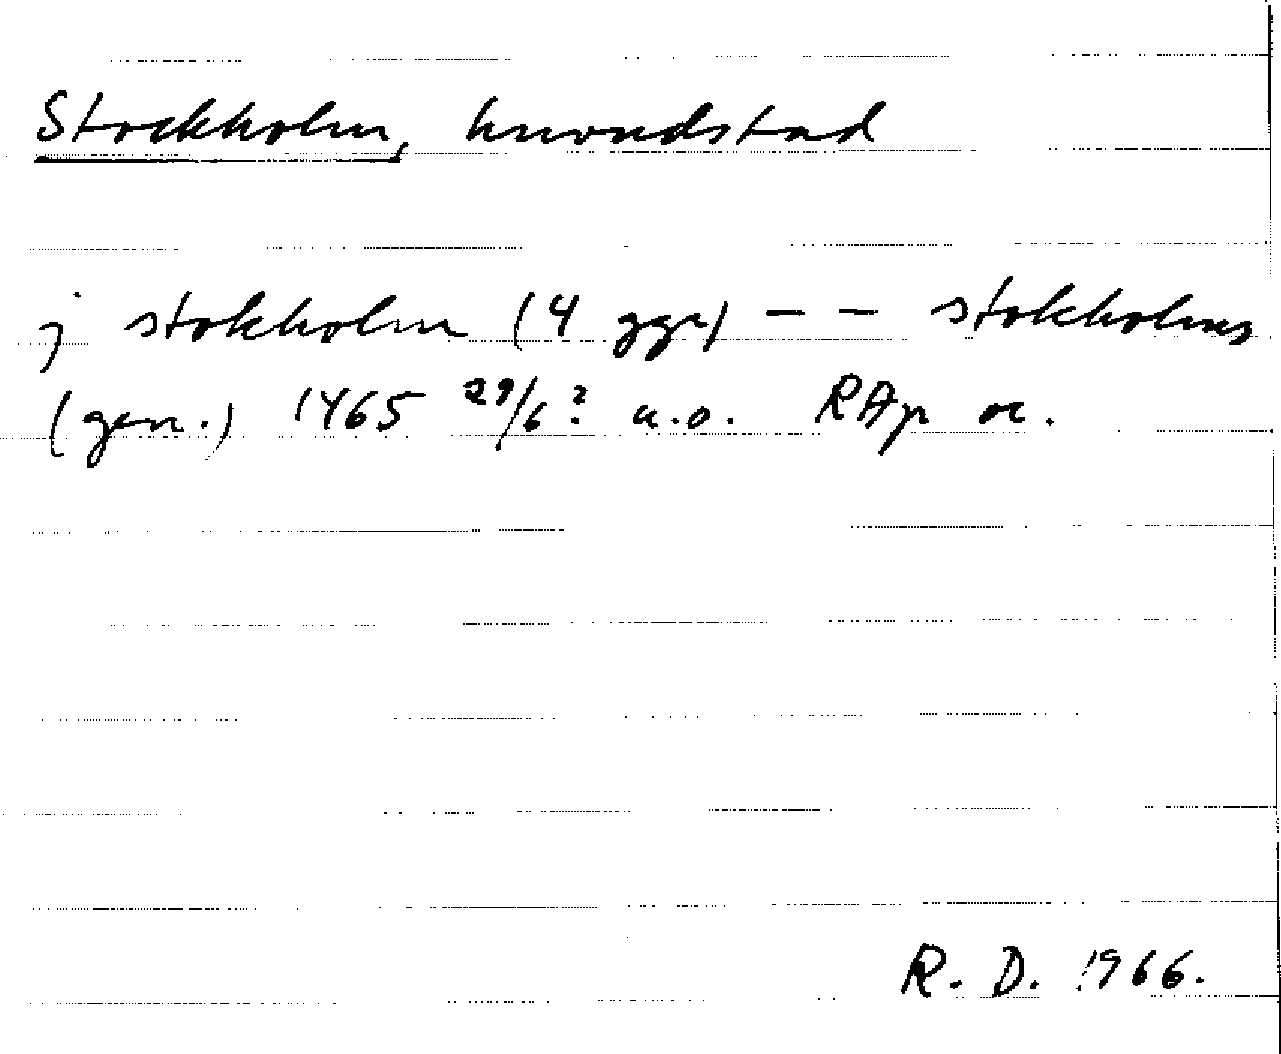 Stockholm, huvudstad
j stokholm (4 ggr) – – stokholms
(gen.) 1465 29/6? u.o. RAp or.
R. D. 1966.